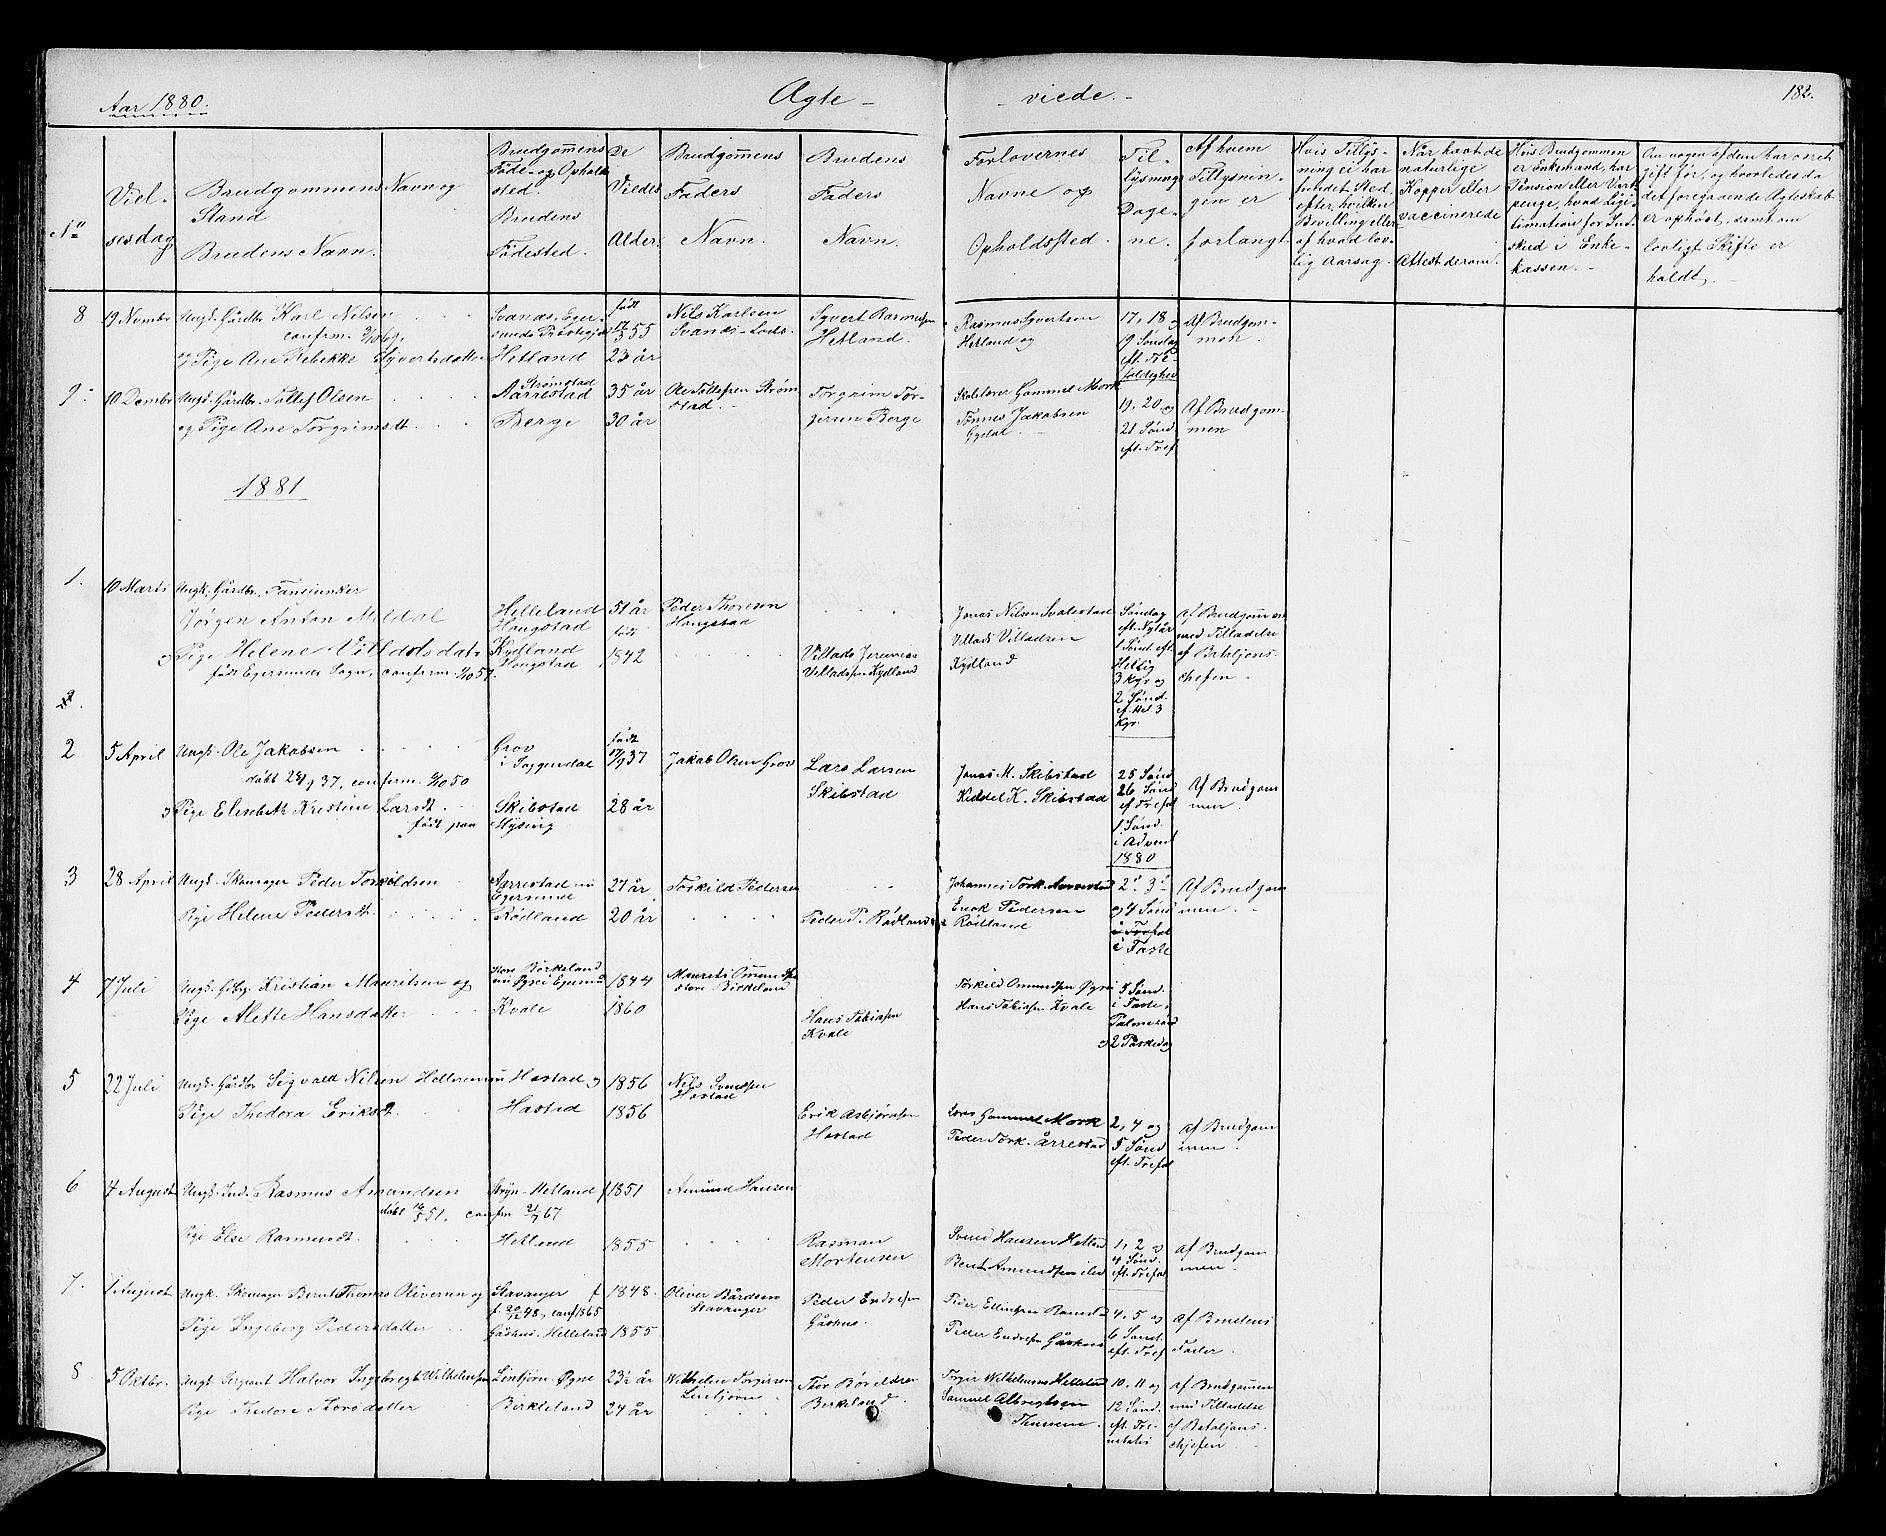 Aar 1880.
Ægte-
-viede.-
182.
No
Viel-
sesdag
Brudgommens Navn og
Stand
Brudens Navn.
Brudgom̄ens
Føde- og Opholds
sted.
Brudens
Fødested.
De
Viedes
Alder.
Brudgom̄ens
Faders
Navn.
Brudens
Faders
Navn.
Forlovernes
Navne og
Opholdssted.
Til-
lysnings
Dage-
ne.
Af hvem
Tillysnin-
gen er
forlangt
Hvis Tillys-
ning ei har
fundet Sted,
efter hvilken
Bevilling eller
af hvad lov-
lig Aarsag.
Naar havt de
naturlige
Kopper eller
vaccinerede
Attest derom.
Hvis Brudgommen
er Enkemand, har
Pension eller Vart-
penge, hvad Legi-
timation for Ind-
skud i Enke-
kassen.-
Om nogen af dem har været
gift før, og hvorledes da
det foregaaende Ægteskab
er ophøst, samt om
lovligt Skifte er
holdt.
8
19 Novmbr
Ungk. Gårdbr Karl Nilsen
confirm.
og Pige Ane Rebekke Syvertsdatter
Svanes, Eger-
sunds Præstegj
Hetland
født
55
23 år
Nils Karlsen
Svanes-Lods.
Syvert Rasmussen
Hetland.
Rasmus Syvertsen
Hetland og
17, 18 og
19 Søndag
eft. Tre-
foldighed
af Brudgom-
men.
9.
10 Dcembr
Ungk. Gårdbr. Tollef Olsen
og Pige Ane Torgrimsdt.
Strømstad
Aarrestad
Berge
35 år
30 år
Ole Tollefsen Strøm
stad.
Torgrim Tor-
gersen Berge
Skolelærer Gammel Mork
Tønnes Jakobsen
Gydal.
19, 20 og
21 Sønd
eft. Tref
Af Brudgom-
men
1881
1.
10 Marts
Ungk. Gårdbr. Fanejunker
Jørgen Anton Meldal
og Pige Helene Villadsdat
født Egersunds Sogn, confirm 57.
Helleland
Haugstad
Kydland
Haugstad
51 år
født
1842
Peder Thorsen
Haugstad
Villads Jeremias
Villadsen Kydland
Jonas Nilsen Svalestad
Villads Villadsen
Kydland
Søndag
eft. Nytår
1 Sønd eft
Hellig
3 Kgr og
2 Sønd.
ef. Hel 3
Kgr.
af Brudgom̄en
med Tilladelse
af Bataljons-
chefen.
2.
2
5 April
Ungk. Ole Jakobsen
døbt 24/9 37, conferm. 50
og Pige Elisabeth Kristine Larsdt.
født paa
Grov
i Soggendal
Skibstad
Hysing
født
37
28 år
Jakob Olsen Grov
Lars Larsen
Skibstad
Jonas M. Skibstad
Kiddel K. Skibstad
25 Sønd
26 Sønd
ef Trefol
1 Sønd.
i Advent
1880
Af Brudgom
men.
3
28 April
Ungk. Skomager Peder Torkildsen
Pige Helene Pedersdt.
Aarrestad nu
Egersund
Rødland
27 år
20 år
Torkild Pedersen
Peder P. Rødland
Johannes Tork. Aarrestad
Enok Pedersen
Rødland
2. 3.
og 4 Sønd
i Faste
Af Brudgom
men.
4
7 Juli
Ungk. Gdbr. Kristian Mauritsen og
Pige Alette Hansdatter
Store Birkeland
nu Øgrei Egersund
Kvale
1844
1860
Maurits Omundsen
store Birkeland
Hans Tobiassen
Kvale
Torkild Omundsen Øgrei
Hans Tobiassen Kvale
5 Sønd.
i Faste,
Palmesønd
og 2 Paskedag
5
22 Juli
Ungk. Gårdbr Sigvald Nilsen Helleren nu
Pige Thedora Eriksdt
Hæstad og
Hæstad
1856
1856
Nils Svendsen
Hæstad
Erik Asbjørnsen
Hæstad
Lærer Gammel Mork
Peder Tork. Årrestad
2, 4 og
5 Sønd
eft. Trefol
af Brudgom
men.
6
4 August
Ungk. Ind. Rasmus Amundsen
døbt 51, confm 67
Pige Else Rasmusdt.
Hetland f
Hetland
1851
1855
Amund Hansen
Rasman
Mortensen
Svend Hansen Hetland
Bent Amundsen ibd
1, 2 og
4 Sønd.
eft. Trefol
af Brudgom
men.
7.
August
Ungk. Skomager Bernt Thomas Oliversen og
Pige Ingeborg Pedersdatter
Stavanger f
f. 48, conf 1865
Gåshus-Helleland
1848.
1855
Oliver Bårdsen
Stavanger
Peder Endresen
Gåshus.
Peder Ellingsen Ramsld
Peder Endresen Gåshus
4, 5 og
6 Sønd.
eft. Tref
af Brudens
Fader.
8
5 Oktbr.
Ungk. Sergeant Halvor Ingebregt Wilhelmsen
Pige Thedore Thorsdatter
Lintjørn Øgne
Birkeland
23½ år
24 år
Wilhelm Torgersen
Lintjørn
Thor Børeldsen
Birkeland.
Torger Wilhelmsen Helleland
Samuel Albregtsen
Thunem.
10, 11 og
12 Sønd.
eft. Tre-
nitatis
af Brudgommen
med Tilladelse
af Bataljons-
chefen.